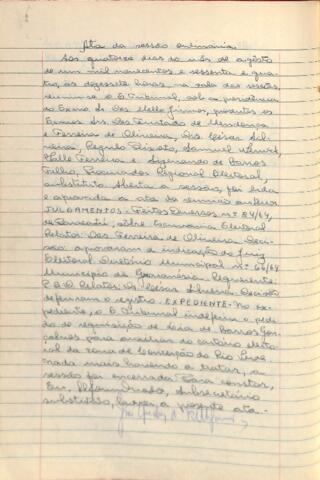 Ata da sessão ordinária
Aos quatorze dias do mês de agosto
de um mil novecentos e sessenta e qua-
tro, às dezessete horas, na sala das sessões,
reuniu-se o E. Tribunal, sob a presidência
do Exmo. Sr. Des. Mello Júnior, presentes os
Exmos. Srs. Des. Furtado de Mendonça
e Ferreira de Oliveira, Drs. César Sil-
veira, Régulo Peixoto, Samuel
Valle Ferreira e de Barros
Filho, Procurador Regional Eleitoral,
substituto. Aberta a sessão, foi lida
e aprovada a ata da reunião anterior.
JULGAMENTOS - Feitos Diversos nº 84/64,
de sobre Escrivania Eleitoral
Relator: Des. Ferreira de Oliveira. Deci-
são: aprovaram a indicação do Juiz
Eleitoral. Diretório Municipal nº 66/64
Município de Guaranésia. Requerente:
Relator: Dr. César Silveira. Decisão:
deferiram o registro. EXPEDIENTE - No ex-
pediente, o E. Tribunal indeferiu o pedi-
do de requisição de de Barros Gon-
çalves para auxiliar do cartório eleito-
ral da zona de Conceição do Rio Verde.
Nada mais havendo a tratar, a
sessão foi encerrada. Para constar,
Eu, Subsecretário
substituto, lavrei a presente ata.